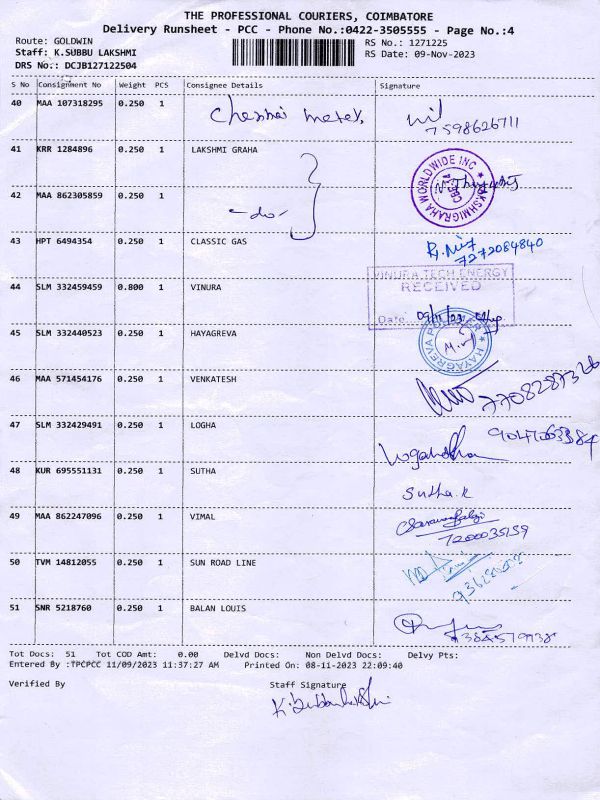 THE PROFESSIONAL COURIERS, COIMBATORE
Delivery Runsheet - PCC - Phone No.:0422-3505555 - Page No.:4
Route: GOLDWIN
RS No.: 1271225
Staff: K.SUBBU LAKSHMI
RS Date: 09-Nov-2023
DRS No.: DCJB127122504
S No Consignment No Weight PCS Consignee Details Signature
40 MAA 107318295 0.250 1 Chennai
7598626711
41 KRR 1284896 0.250 1 LAKSHMI GRAHA
LAKSHMIGRAHA WORLDWIDE INC
42 MAA 862305859 0.250 1 -do-
43 HPT 6494354 0.250 1 CLASSIC GAS
7272084840
44 SLM 332459459 0.800 1 VINURA
VINURA TECH ENERGY
RECEIVED
Date 09/11/23
45 SLM 332440523 0.250 1 HAYAGREVA
HAYAGREVA
46 MAA 571454176 0.250 1 VENKATESH
7708287326
47 SLM 332429491 0.250 1 LOGHA
48 KUR 695551131 0.250 1 SUTHA
Sutha.K
49 MAA 862247096 0.250 1 VIMAL
7200035159
50 TVM 14812055 0.250 1 SUN ROAD LINE
51 SNR 5218760 0.250 1 BALAN LOUIS
Tot Docs: 51 Tot COD Amt: 0.00 Delvd Docs: Non Delvd Docs: Delvy Pts:
Entered By :TPCPCC 11/09/2023 11:37:27 AM Printed On: 08-11-2023 22:09:40
Verified By Staff Signature
K. Subbulakshmi